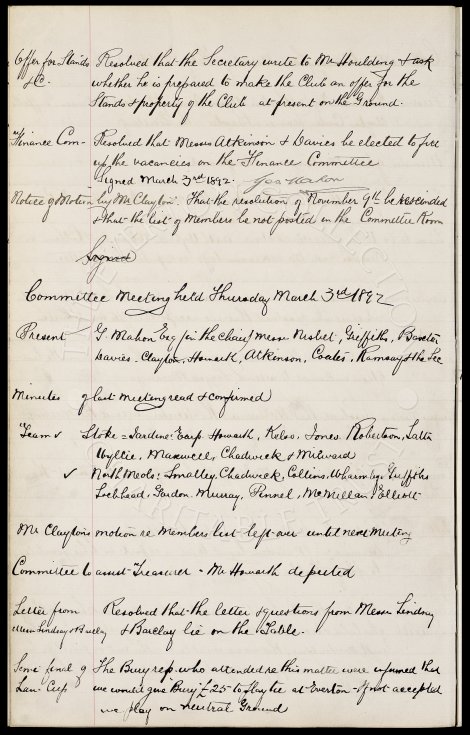 Offer for Stands Resolved that the Secretary write to Mr Houlding & ask
&c. whether he is prepared to make the Club an offer for the
Stands & property of the Club at present on the Ground.
Finance Com- Resolved that Messrs Atkinson & Davies be elected to fill
up the vacancies on the Finance Committee
Signed March 3rd 1892. Geo Mahon
Notice of Motion by Mr Clayton. That the resolution of November 9th be rescinded
& that the list of Members be not posted in the Committee Room
Signed
Committee Meeting held Thursday March 3rd 1892
Present G. Mahon Esq (in the chair) Messrs Nisbet, Griffiths, Baxter
Davies, Clayton, Howarth, Atkinson, Coates, Ramsay & the Sec
Minutes of last meeting read & confirmed
Teams v Stoke = Jardine: Earp. Howarth, Kelso, Jones. Robertson, Latta
Wyllie, Maxwell, Chadwick & Milward
v North Meols: Smalley, Chadwick, Collins, Wharmby, Griffiths
Lochhead, Gordon. Murray, Pinnel, McMillan, Elliott
Mr Clayton's motion re Members list left over until next Meeting
Committee to assist Treasurer - Mr Howarth deputed
Letter from Resolved that the letter & questions from Messrs Lindsay
Messrs Lindsay & Barclay & Barclay lie on the Table.
Semi final of The Bury reps. who attended re this matter were informed that
Lanc Cup we would give Bury £25 to play tie at Everton - If not accepted
we play on neutral Ground